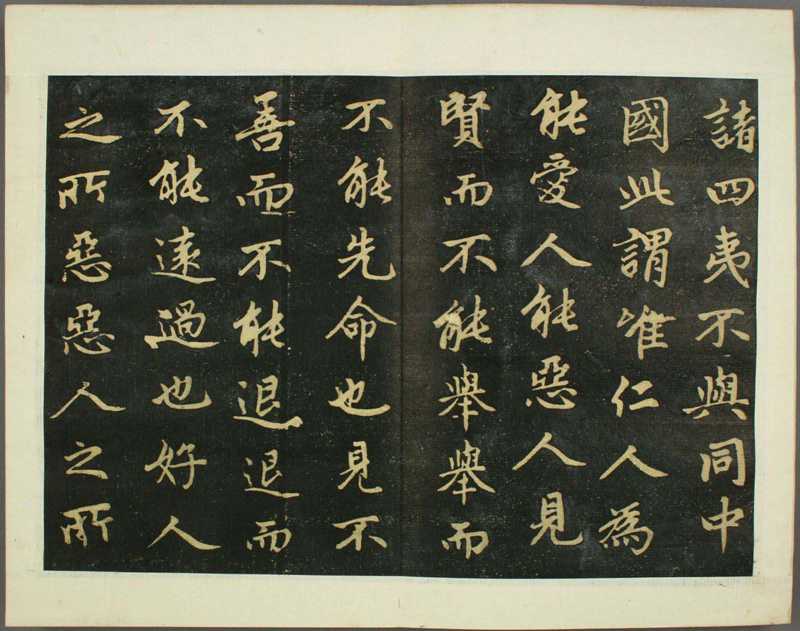 諸四夷不與同中
國此謂唯仁人為
能愛人能惡人見
賢而不能舉舉而
不能先命也見不
善而不能退退而
不能遠過也好人
之所惡惡人之所